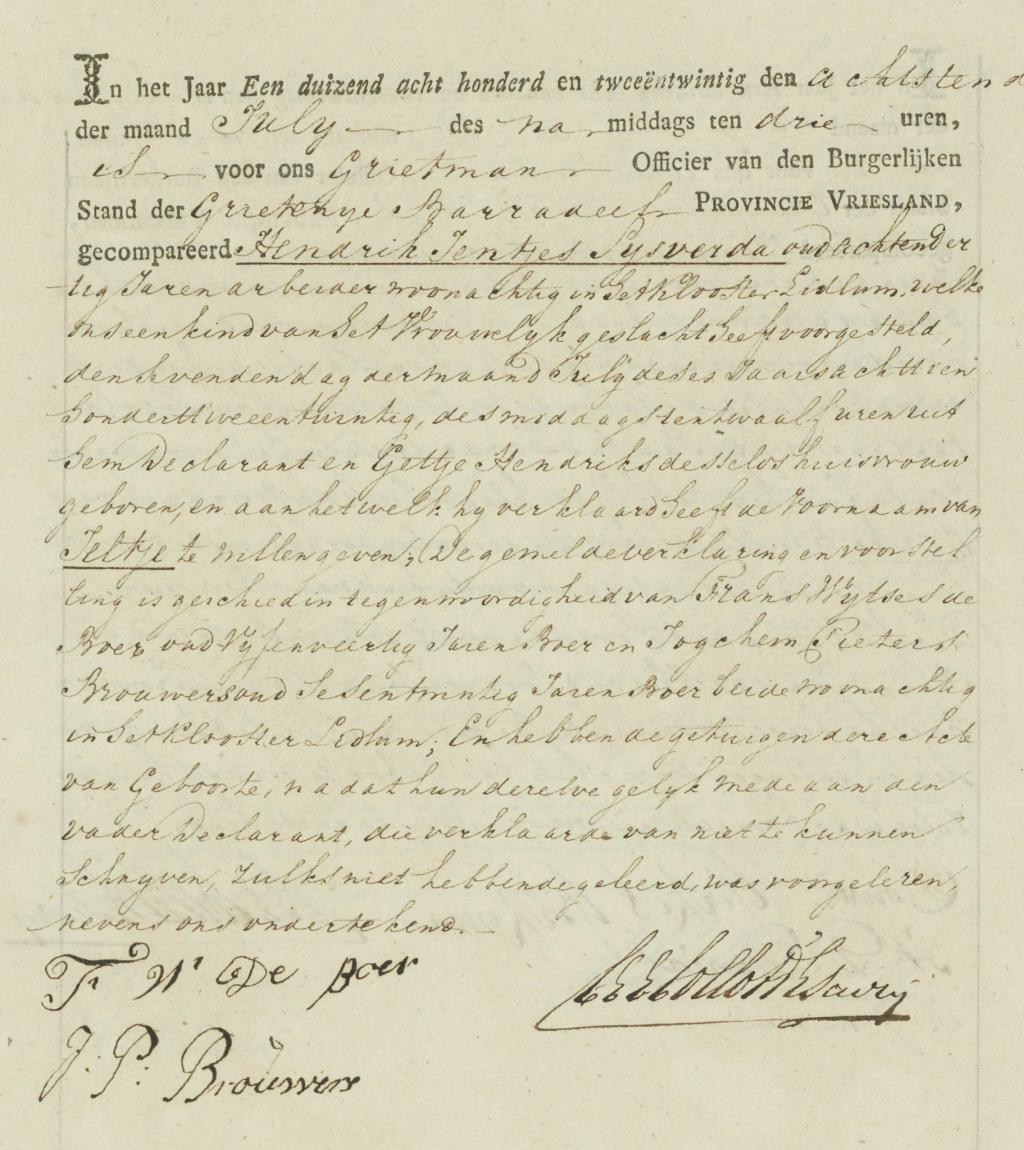 In het Jaar Een duizend acht honderd en tweeëntwintig den achtsten
der maand July des na middags ten drie uren,
is voor ons Grietman Officier van den Burgerlijken
Stand der Grietenye Barradeel PROVINCIE VRIESLAND,
gecompareerd Hendrik Jentjes Sysverda oud achtender
tig Jaren arbeider woonachtig in het Klooster Lidlum, welke
ons een kind van het Vrouwelyk geslacht heeft voorgesteld,
den sevenden dag der maand July deses Jaars achttien
hondert tweeentwintig, des middags ten twaalf uren uit
hem Declarant en Gettje Hendriks desselvs huisvrouw
geboren, en aan het welk hy verklaard heeft de Voornaam van
Jeltje te willen geven; De gemelde verklaring en voorstel
ling is geschied in tegenwoordigheid van Frans Wytses de
Boer oud Vyfenveertig Jaren Boer en Jogchem Pieters
Brouwers oud Sesentwintig Jaren Boer beide woonachtig
in het Klooster Lidlum; En hebben de getuigen dese Acte
van Geboorte, na dat hun deselve gelyk mede aan den
vader Declarant, die verklaarde van niet te kunnen
Schryven, zulks niet hebbende geleerd, was voorgelesen,
nevens ons ondertekend.
F W De Boer
J. P. Brouwers